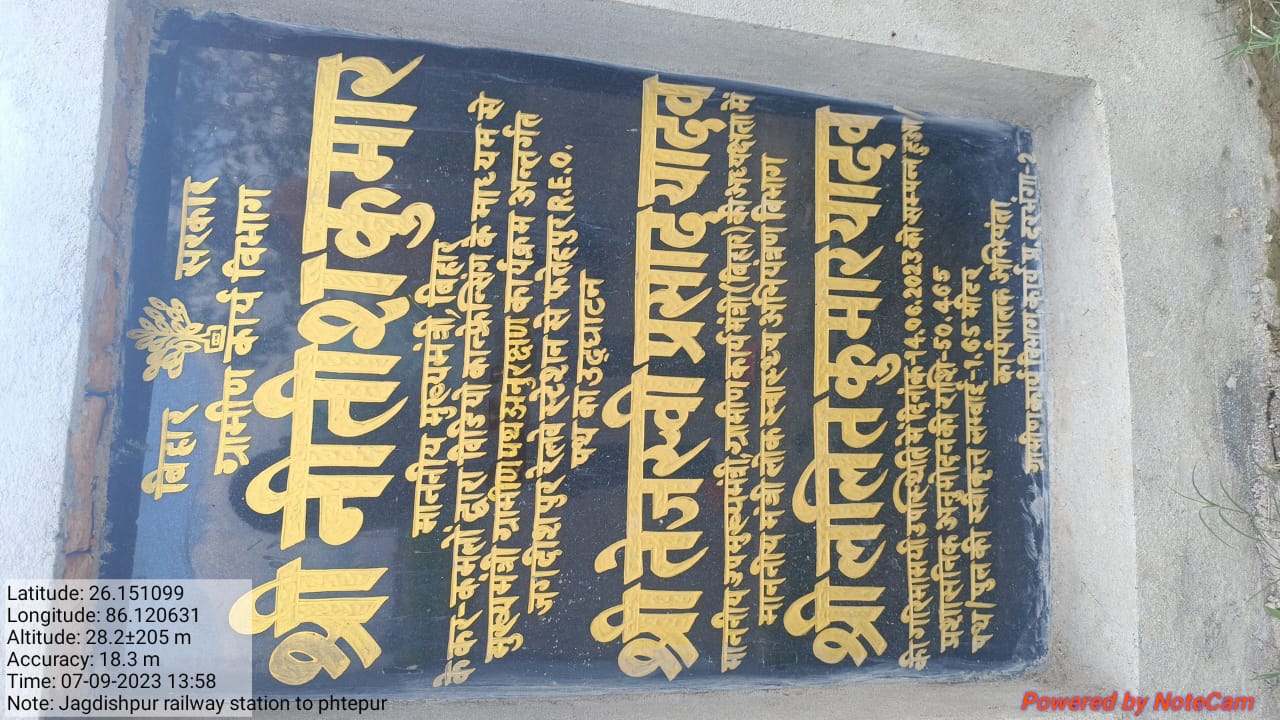 बिहार सरकार
ग्रामीण कार्य विभाग
श्री नीतीश कुमार
माननीय मुख्यमंत्री, बिहार
के कर-कमलों द्वारा विडियो कान्फ्रेन्सिंग के माध्यम से
मुख्यमंत्री ग्रामीण पथ अनुरक्षण कार्यक्रम अन्तर्गत
जगदीशपुर रेलवे स्टेशन से फतेहपुर R.E.O.
पथ का उद्घाटन
श्री तेजस्वी प्रसाद यादव
माननीय उपमुख्यमंत्री, ग्रामीण कार्य मंत्री (बिहार) की अध्यक्षता में
माननीय मंत्री लोक स्वास्थ्य अभियंत्रण विभाग
श्री ललित कुमार यादव
की गरिमामयी उपस्थिति में दिनांक-14.06.2023 को सम्पन्न हुआ।
प्रशासनिक अनुमोदन की राशि-50.465
पथ/पुल की स्वीकृत लम्बाई-1.65 मीटर
कार्यपालक अभियंता
ग्रामीण कार्य विभाग कार्य प्र. दरभंगा-2
Latitude: 26.151099
Longitude: 86.120631
Altitude: 28.2±205 m
Accuracy: 18.3 m
Time: 07-09-2023 13:58
Note: Jagdishpur railway station to phtepur
Powered by NoteCam